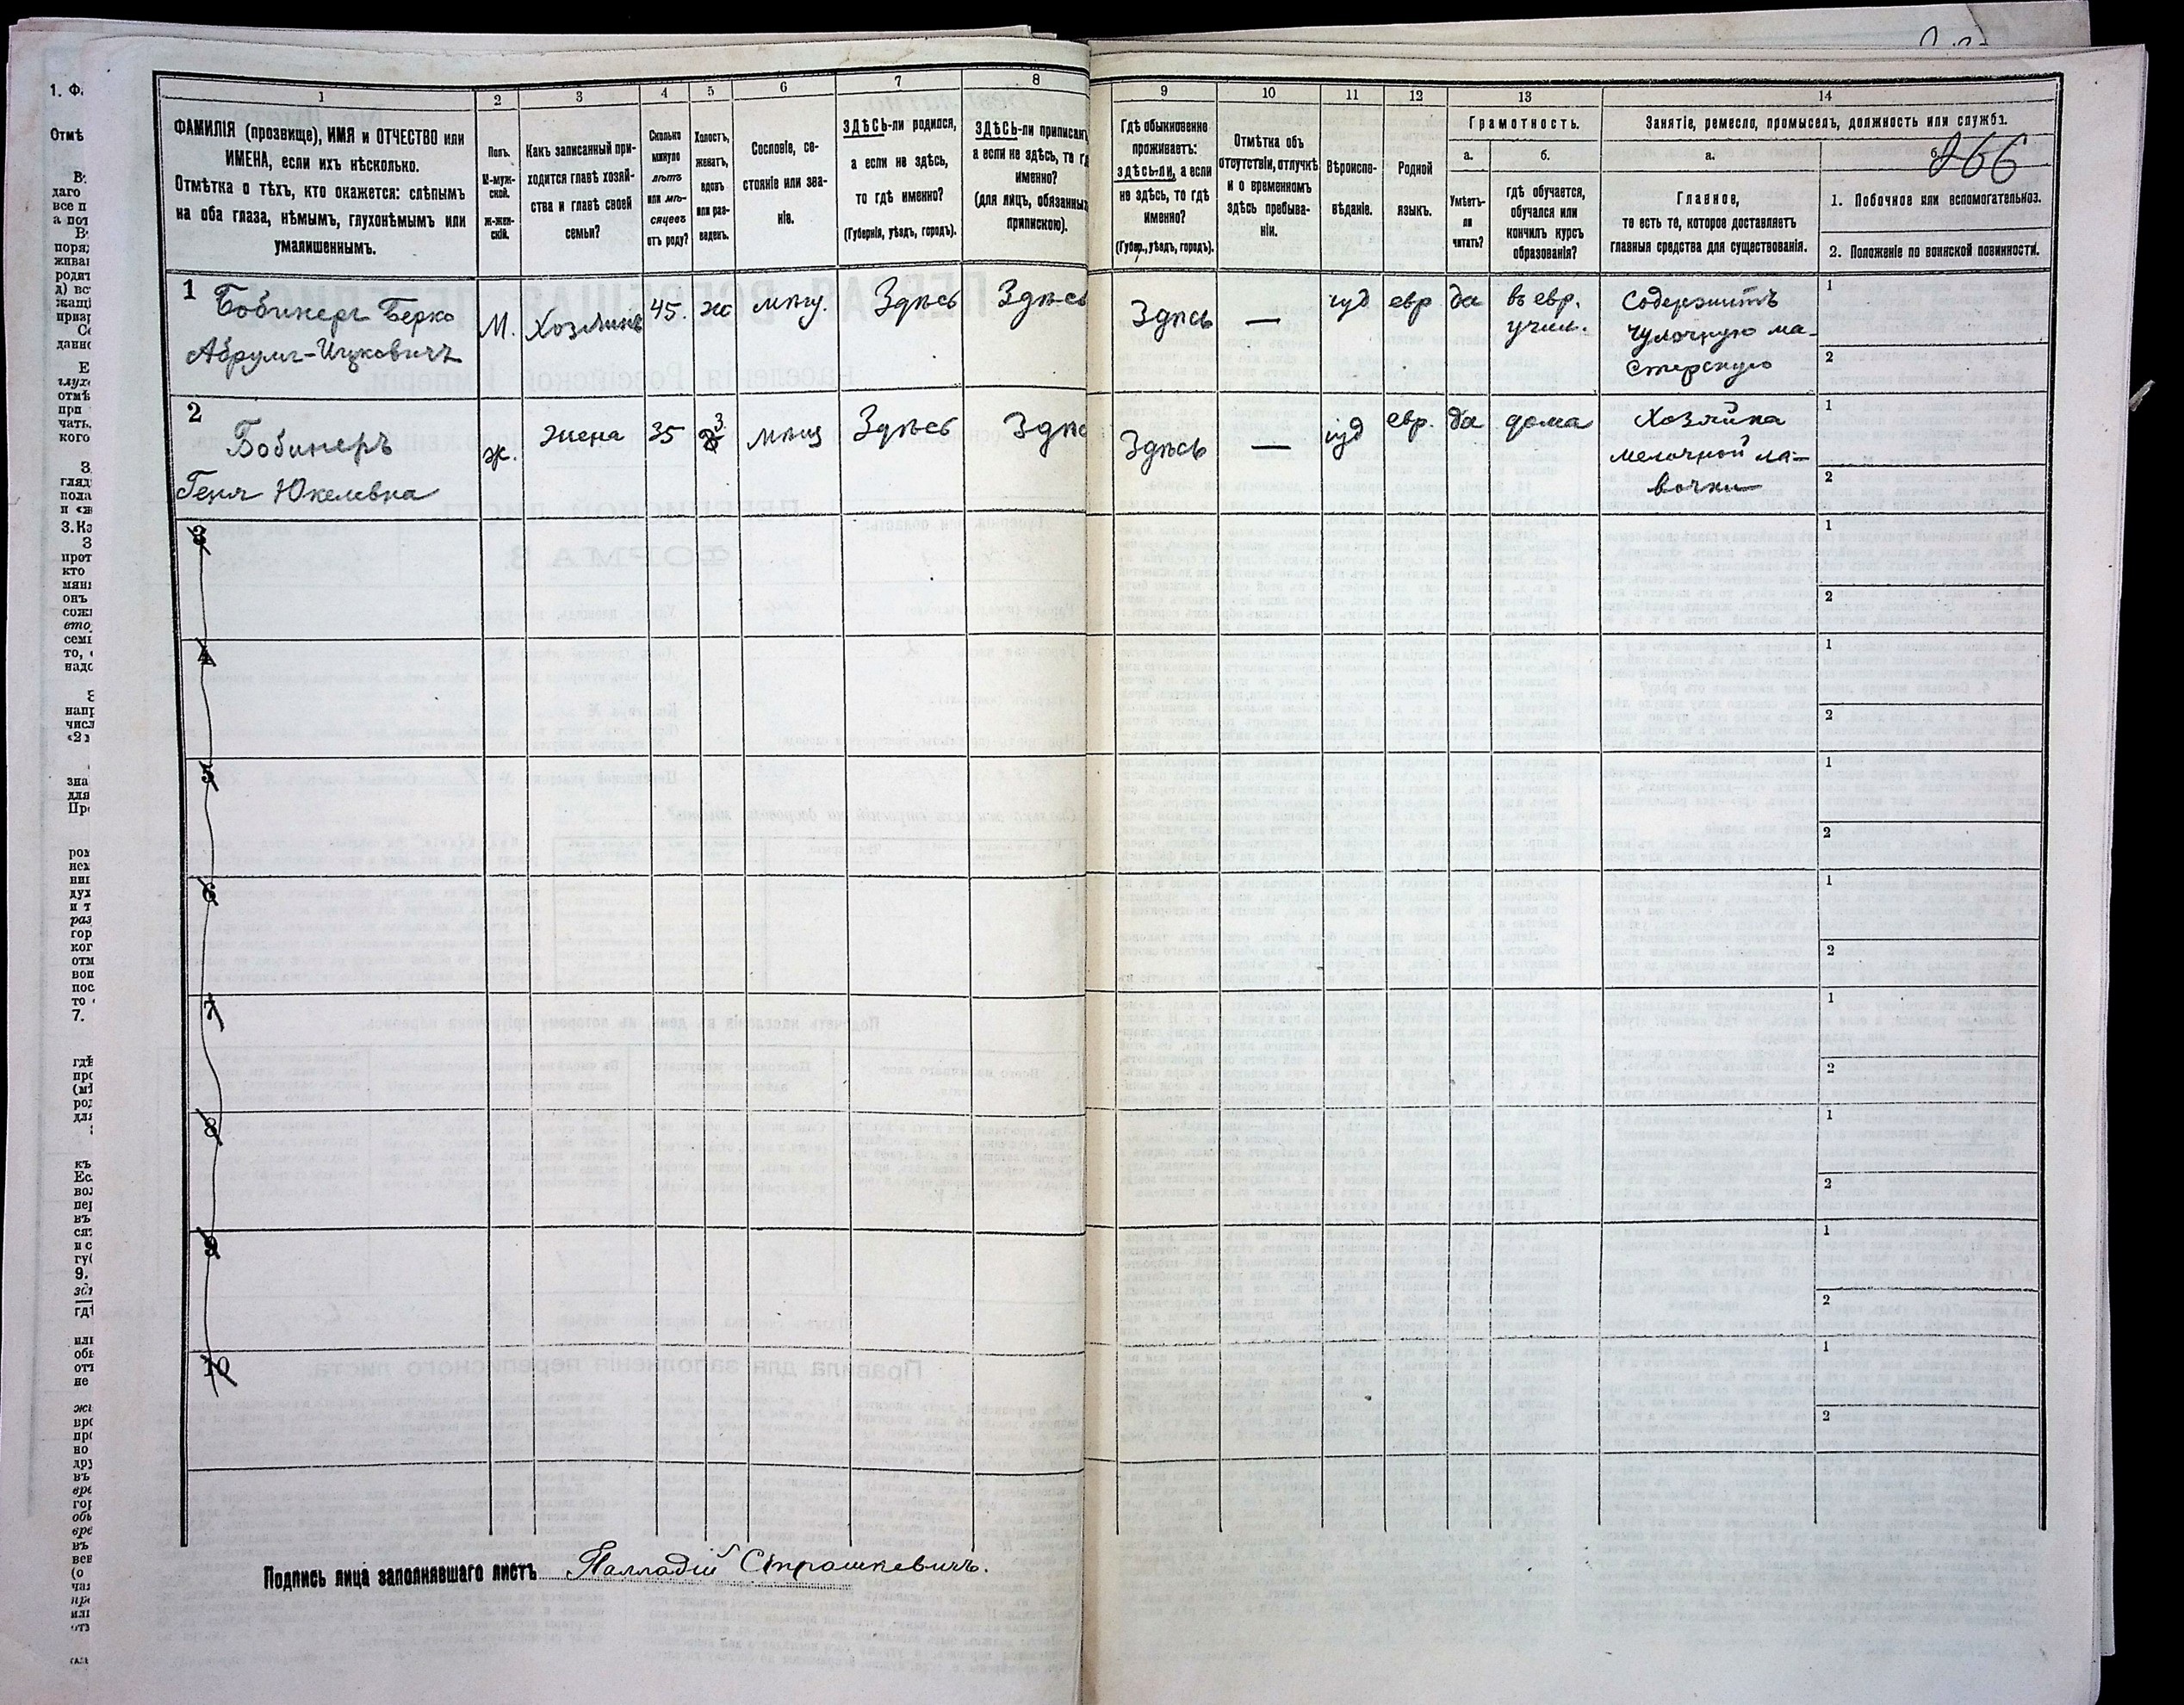 1
2
3
4
5
6
7
8
9
10
11
12
13
14
ФАМИЛІЯ (прозвище), ИМЯ и ОТЧЕСТВО или
ИМЕНА, если ихъ нѣсколько.
Отмѣтка о тѣхъ, кто окажется: слѣпымъ
на оба глаза, нѣмымъ, глухонѣмымъ или
умалишеннымъ.
Полъ.
М-муж-
ской.
Ж-жен-
скій.
Какъ записанный при-
ходится главѣ хозяй-
ства и главѣ своей
семьи?
Сколько
минуло
лѣтъ
или мѣ-
сяцевъ
отъ роду?
Холостъ,
женатъ,
вдовъ
или раз-
веденъ.
Сословіе, со-
стояніе или зва-
ніе.
ЗДѢСЬ-ли родился,
а если не здѣсь,
то гдѣ именно?
(Губернія, уѣздъ, городъ).
ЗДѢСЬ-ли приписанъ
а если не здѣсь, то гд
именно?
(для лицъ, обязанных
припискою).
Гдѣ обыкновенно
проживаетъ:
здѣсь-ли, а если
не здѣсь, то гдѣ
именно?
(Губер., уѣздъ, городъ).
Отмѣтка объ
отсутствіи, отлучкѣ
и о временномъ
здѣсь пребыва-
ніи.
Вѣроиспо-
вѣданіе.
Родной
языкъ.
Грамотность.
а.
Умѣетъ-
ли
читать?
б.
гдѣ обучается,
обучался или
кончилъ курсъ
образованія?
Занятіе, ремесло, промыселъ, должность или служба.
а.
Главное,
то есть то, которое доставляетъ
главныя средства для существованія.
б.
266
1. Побочное или вспомогательное.
2. Положеніе по воинской повинности.
1
Бобинеръ Берко
Абрумъ-Ицковичъ
М.
Хозяинъ
45.
ж
мѣщ.
Здѣсь
Здѣсь
Здѣсь
—
іуд
евр
да
въ евр.
учил.
Содержитъ
чулочную ма-
стерскую
1
2
2
Бобинеръ
Геня Юкелевна
ж.
жена
35
з
мѣщ
Здѣсь
Здѣс
Здѣсь
—
іуд
евр.
да
дома
Хозяйка
мелочной ла-
вочки
1
2
3
1
2
4
1
2
5
1
2
6
1
2
7
1
2
8
1
2
9
1
2
10
1
2
Подпись лица заполнявшаго листъ Палладій Страшкевичъ.